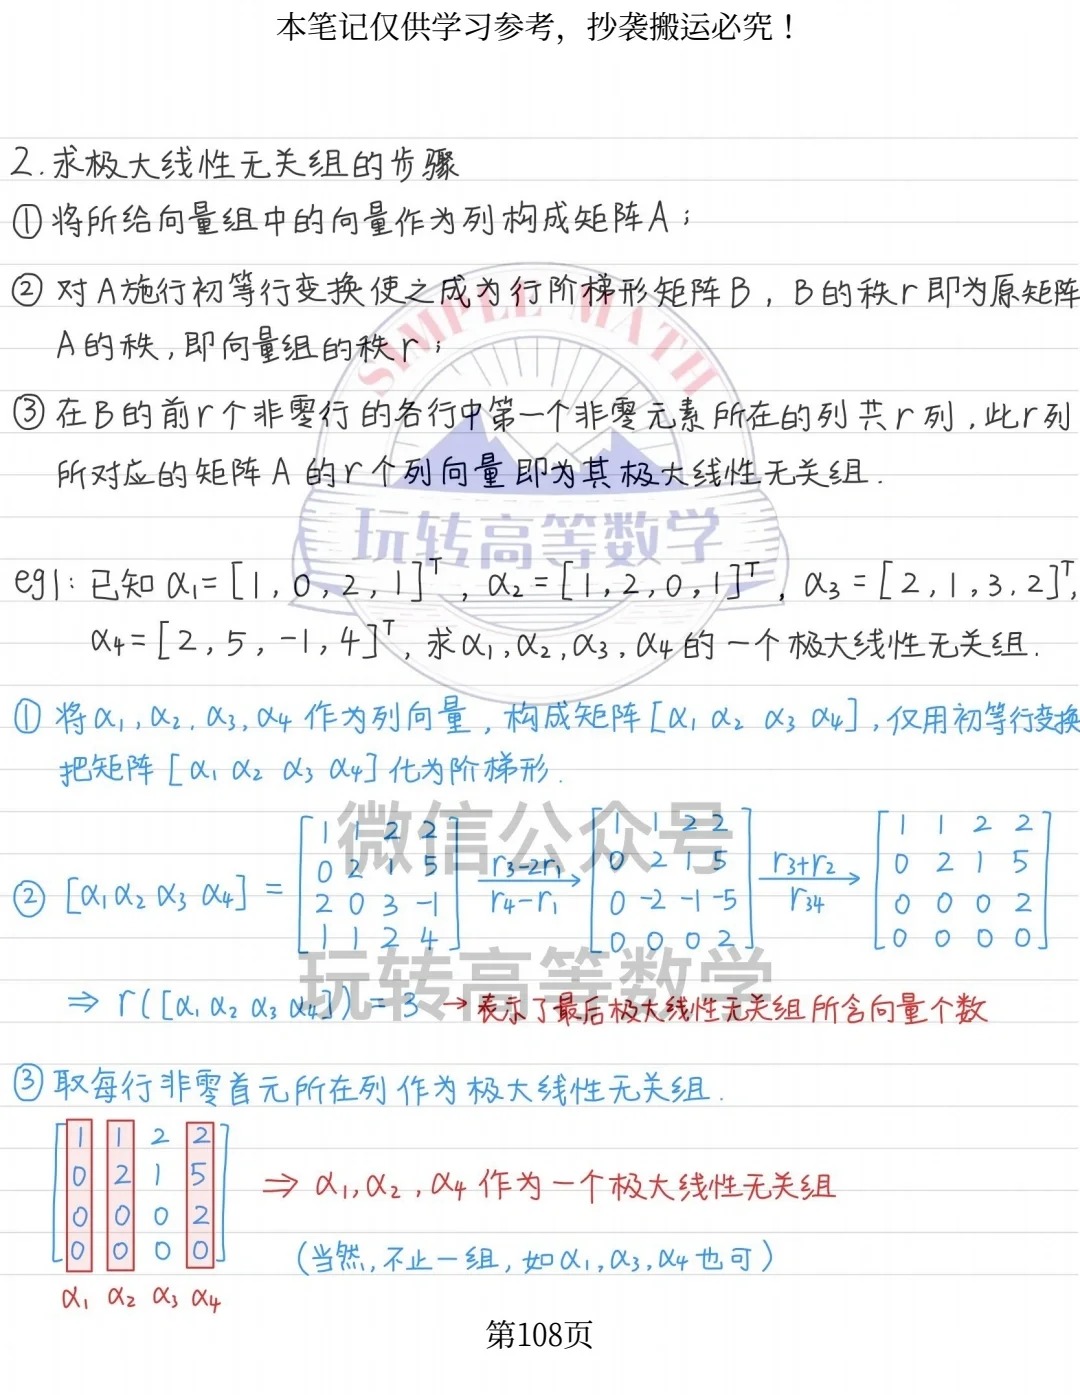 本笔记仅供学习参考，抄袭搬运必究！
2.求极大线性无关组的步骤
①将所给向量组中的向量作为列构成矩阵A；
②对A施行初等行变换使之成为行阶梯形矩阵B，B的秩r即为原矩阵
A的秩，即向量组的秩r；
③在B的前r个非零行的各行中第一个非零元素所在的列共r列，此r列
所对应的矩阵A的r个列向量即为其极大线性无关组.
SIMPLE MATH
玩转高等数学
eg1:已知α₁=[1,0,2,1]ᵀ，α₂=[1,2,0,1]ᵀ，α₃=[2,1,3,2]ᵀ，
α₄=[2,5,-1,4]ᵀ，求α₁,α₂,α₃,α₄的一个极大线性无关组.
①将α₁,α₂,α₃,α₄作为列向量，构成矩阵[α₁ α₂ α₃ α₄]，仅用初等行变换
把矩阵[α₁ α₂ α₃ α₄]化为阶梯形.
微信公众号
1 1 2 2 1 1 2 2 1 1 2 2
0 2 1 5 r₃-2r₁ 0 2 1 5 r₃+r₂ 0 2 1 5
②[α₁ α₂ α₃ α₄]= 2 0 3 -1 r₄-r₁ 0 -2 -1 -5 r₃₄ 0 0 0 2
1 1 2 4 0 0 0 2 0 0 0 0
玩转高等数学
⇒ r([α₁ α₂ α₃ α₄])=3 →表示了最后极大线性无关组所含向量个数
③取每行非零首元所在列作为极大线性无关组.
1 1 2 2
0 2 1 5 ⇒ α₁,α₂,α₄作为一个极大线性无关组
0 0 0 2
0 0 0 0 （当然，不止一组，如α₁,α₃,α₄也可）
α₁ α₂ α₃ α₄
第108页